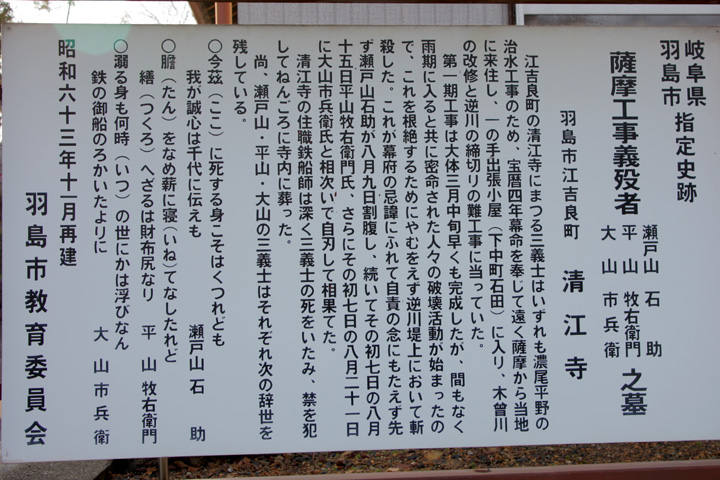 岐阜県
羽島市 指定史跡
薩摩工事義歿者 瀬戸山石助 平山牧右衛門 大山市兵衛 之墓
羽島市江吉良町 清江寺
江吉良町の清江寺にまつる三義士はいずれも濃尾平野の
治水工事のため、宝暦四年幕命を奉じて遠く薩摩から当地
に来住し、一の手出張小屋（下中町石田）に入り、木曽川
の改修と逆川の締切りの難工事に当っていた。
第一期工事は大体三月中旬早くも完成したが、間もなく
雨期に入ると共に密命された人々の破壊活動が始まったの
で、これを根絶するためにやむをえず逆川堤上において斬
殺した。これが幕府の忌諱にふれて自責の念にもたえず先
ず瀬戸山石助が八月九日割腹し、続いてその初七日の八月
十五日平山牧右衛門氏、さらにその初七日の八月二十一日
に大山市兵衛氏と相次いで自刃して相果てた。
清江寺の住職鉄船師は深く三義士の死をいたみ、禁を犯
してねんごろに寺内に葬った。
尚、瀬戸山・平山・大山の三義士はそれぞれ次の辞世を
残している。
○今茲（ここ）に死する身こそはくつれども
我が誠心は千代に伝えも 瀬戸山石助
○膽（たん）をなめ薪に寝（いね）てなしたれど
繕（つくろ）へざるは財布尻なり 平山牧右衛門
○溺る身も何時（いつ）の世にかは浮びなん
鉄の御船のろかいたよりに 大山市兵衛
昭和六十三年十一月再建
羽島市教育委員会